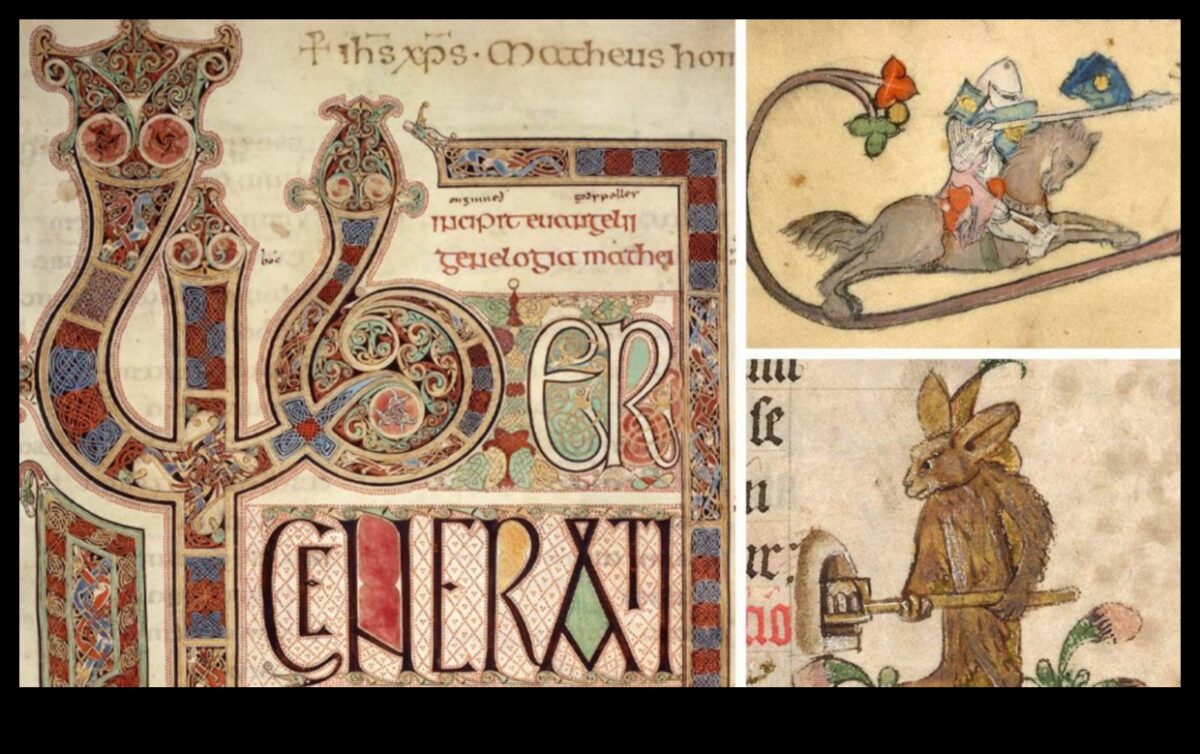 + ihs xps · Matheus hom
onginneð godspelles
incipit euangelii
genelogia mathei
boc
LIBER
GENERATI
se